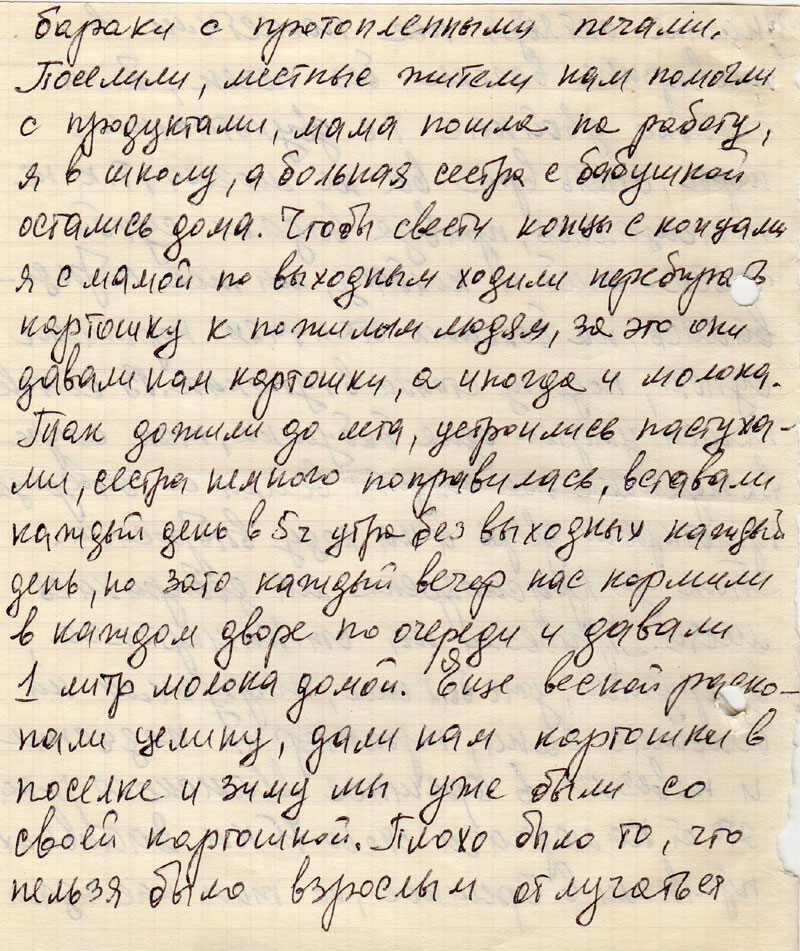 бараки с протопленными печами.
Поселили, местные жители нам помогли
с продуктами, мама пошла на работу,
я в школу, а больная сестра с бабушкой
остались дома. Чтобы свести концы с концами
я с мамой по выходным ходили перебирать
картошку к пожилым людям, за это они
давали нам картошки, а иногда и молока.
Так дожили до лета, устроились пастуха-
ми, сестра немного поправилась, вставали
каждый день в 5 ч утра без выходных каждый
день, но зато каждый вечер нас кормили
в каждом дворе по очереди и давали
1 литр молока домой. Еще весной раско-
пали целину, дали нам картошки в
поселке и зиму мы уже были со
своей картошкой. Плохо было то, что
нельзя было взрослым отлучаться